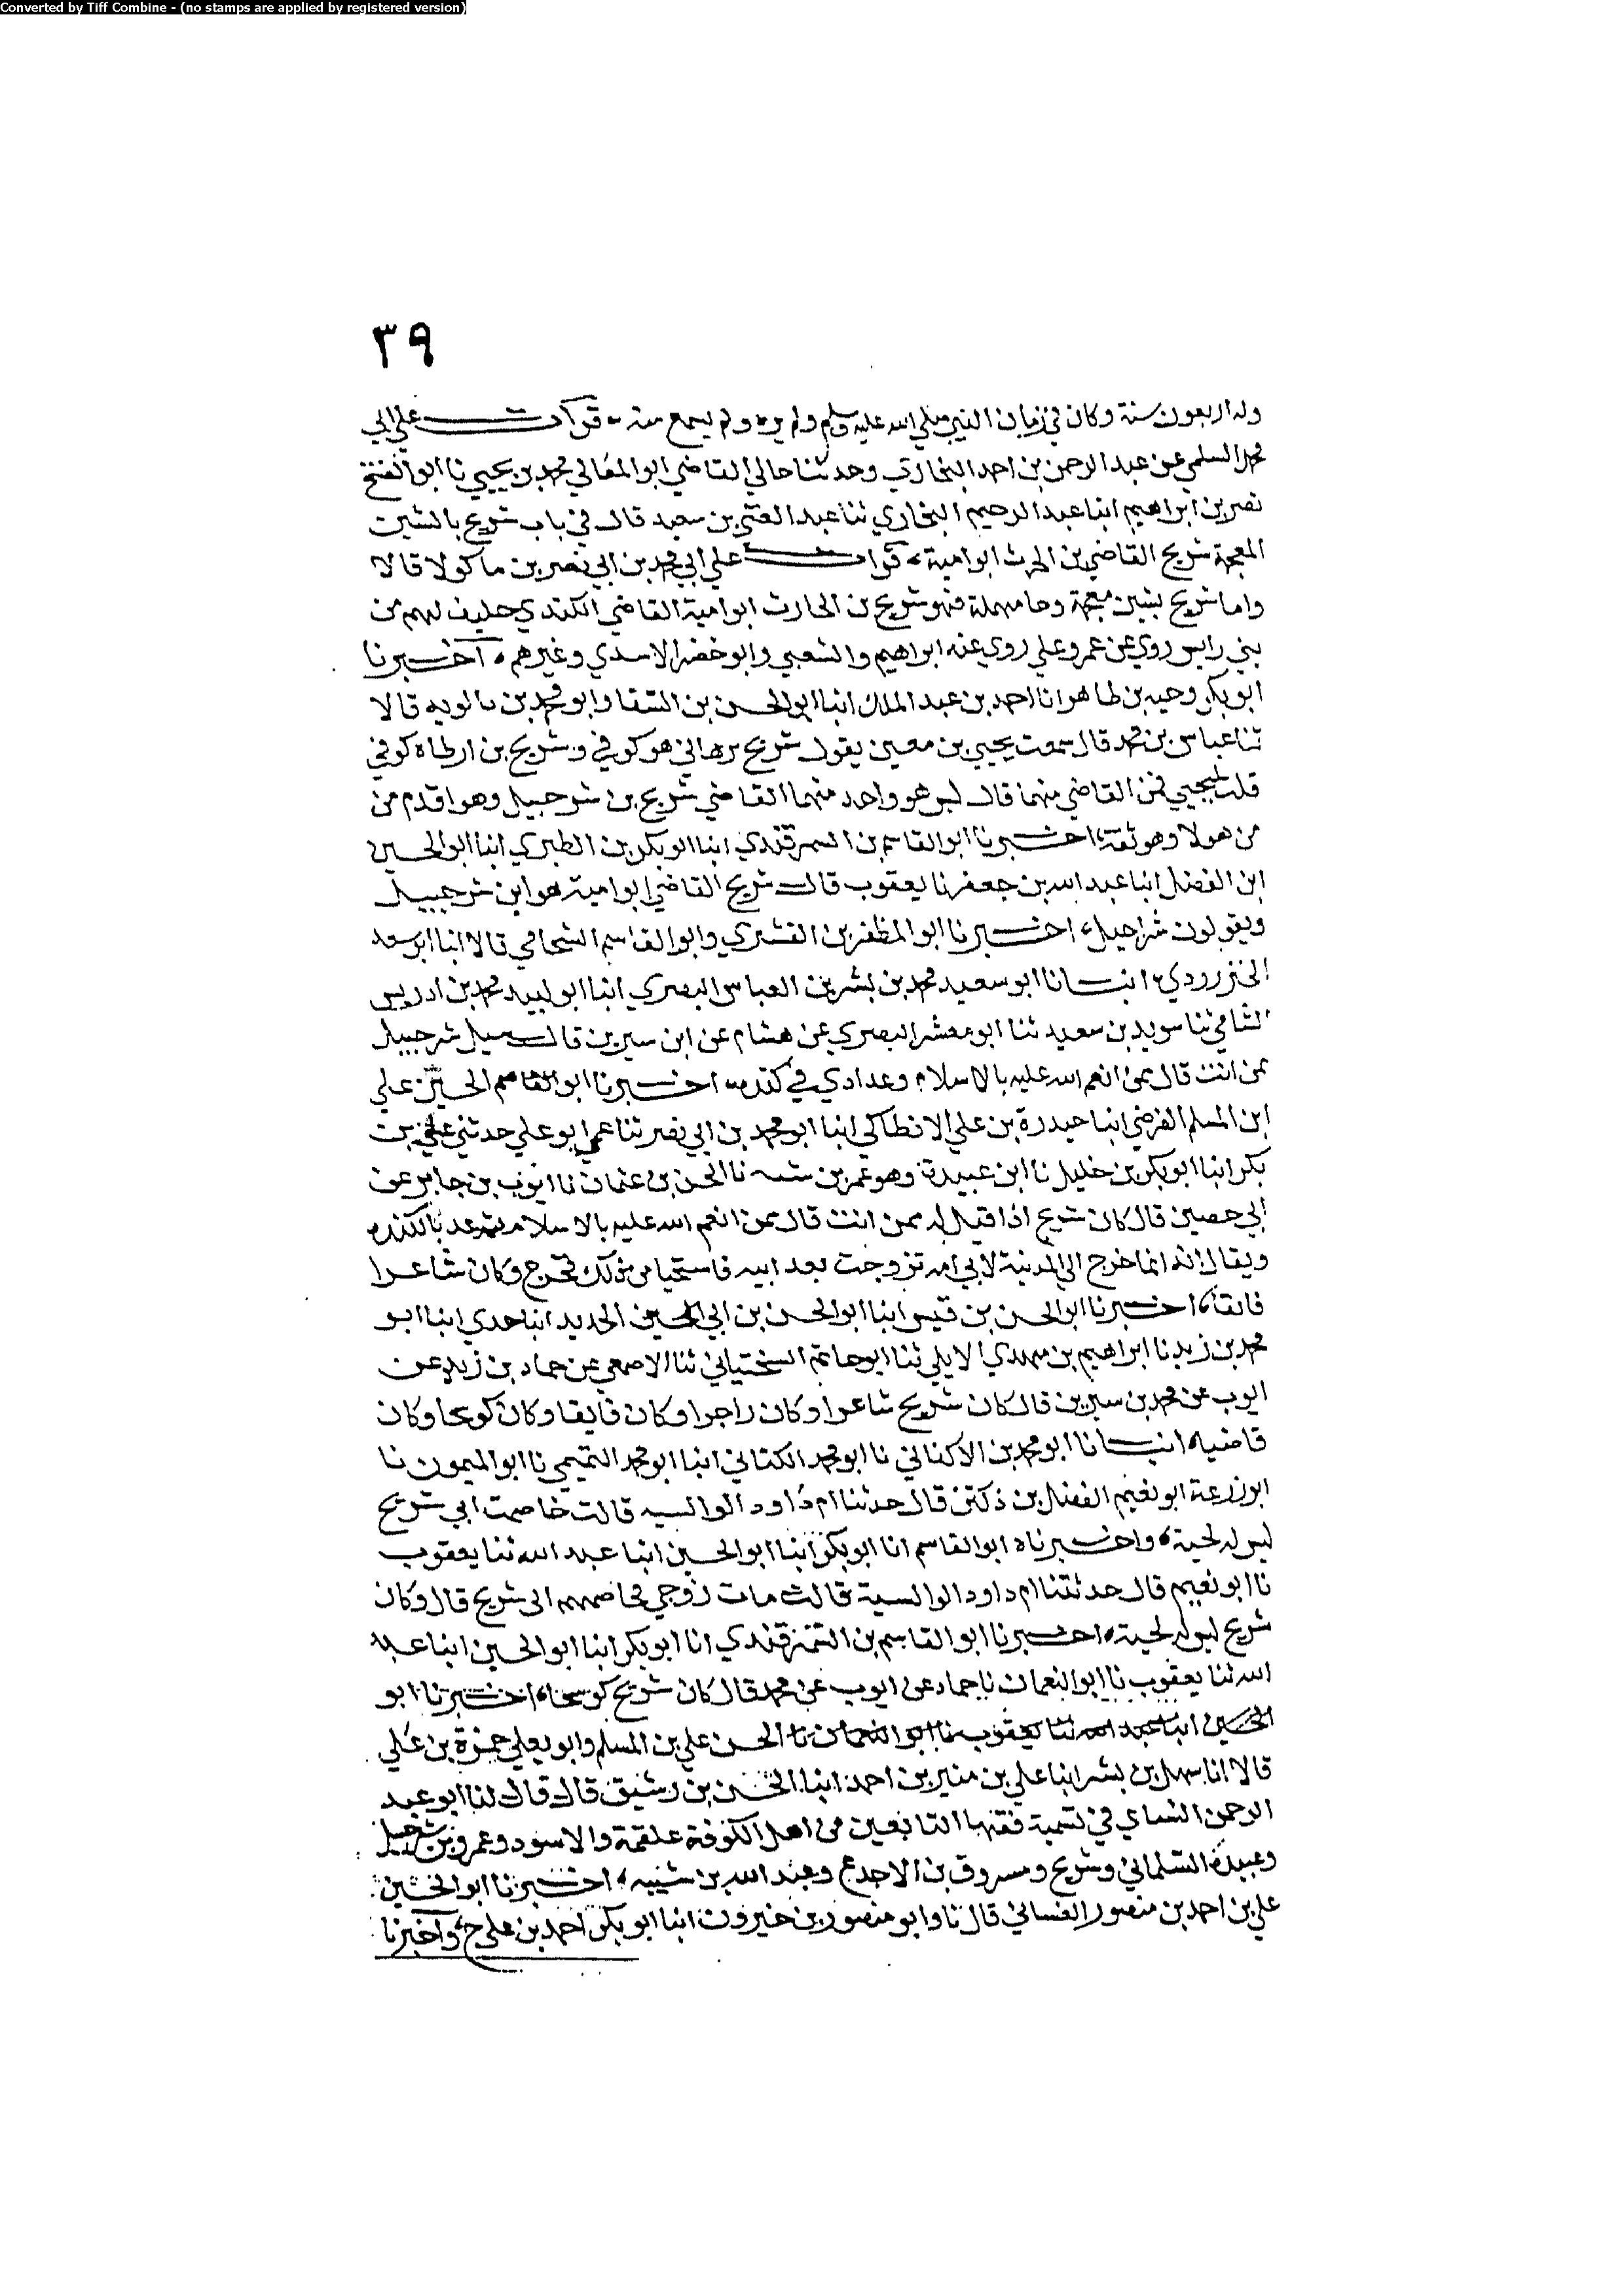 Converted by Tiff Combine - (no stamps are applied by registered version)
٣٩
وله اربعون سنة وكان في زمان النبي صلي الله عليه وسلم ولم يره ولم يسمع منه قرأت علي ابي
محمد السلمي عن عبد الرحمن بن احمد البخاري وحدثنا خالي القاضي ابو المعالي محمد بن يحيي نا ابو الفتح
نصر بن ابراهيم انبا عبد الرحيم البخاري ثنا عبد الغني بن سعيد قال في باب شريح بالشين
المعجمة شريح القاضي بن الحرث ابو امية قرات علي ابي محمد بن ابي نصر بن ماكولا قالا
واما شريح بشين معجمة وحا مهملة فهو شريح بن الحارث ابو امية القاضي الكندي حليف لهم من
بني رايس روي عن عمر وعلي روي عنه ابراهيم والشعبي وابو حضر الاسدي وغيرهم اخبرنا
ابو بكر وحيه بن طاهر انا احمد بن عبد الملك انبا ابو الحسن بن السقا وابو محمد بن بالويه قالا
ثنا عباس بن محمد قال سمعت يحيي بن معين يقول شريح بن هاني هو كوفي وشريح بن ارطاه كوفي
قلت ليحيي فمن القاضي منهما قال ليس هو واحد منهما القاضي شريح بن شرحبيل وهو اقدم من
من هولا وهو ثقة اخبرنا ابو القاسم بن السمرقندي انبا ابو بكر بن الطبري انبا ابو الحسين
ابن الفضل انبا عبد الله بن جعفر نا يعقوب قال شريح القاضي ابو امية هو ابن شرحبيل
ويقولون شراحيل اخبرنا ابو المظفر بن القشيري وابو القاسم الشحامي قالا انبا ابو سعد
الخنزرودي انبانا ابو سعيد محمد بن بشر بن العباس البصري انبا ابو لبيد محمد بن ادريس
الشامي ثنا سويد بن سعيد ثنا ابو معشر البصري عن هشام عن ابن سيرين قال سيل شرحبيل
ممن انت قال ممن انعم الله عليه بالاسلام وعدادي في كنده اخبرنا ابو القاسم الحسين علي
ابن المسلم الفرضي انبا حيدرة بن علي الانطاكي انبا ابو محمد بن ابي نصر ثنا عمي ابو علي حدثني علي بن
بكر انبا ابو بكر بن خليل نا ابن عبيدة وهو عمر بن شبه نا الحسن بن عثمان نا ايوب بن جابر عن
ابي حصين قال كان شريح اذا قيل له ممن انت قال ممن انعم الله عليه بالاسلام بكنده
ويقال انه انما خرج الي المدينة لان امه تزوجت بعد ابيه فاستحيا من ذلك فخرج وكان شاعرا
فايقا اخبرنا ابو الحسن بن قيس انبا ابو الحسن بن ابي الحديد انبا جدي انبا ابو
محمد بن زبد نا ابراهيم بن مهدي الايلي ثنا ابو حاتم السختياني ثنا الاصمعي عن حماد بن زيد عن
ايوب عن محمد بن سيرين قال كان شريح شاعرا وكان راجزا وكان قايفا وكان كوسجا وكان
قاضيا انبانا ابو محمد بن الاكفاني نا ابو محمد الكتاني انبا ابو محمد التميمي نا ابو الميمون نا
ابو زرعة ابو نعيم الفضل بن دكين قال حدثنا ام داود الوابسيه قالت خاصمت الي شريح
ليس له لحية واخبرناه ابو القاسم انا ابو بكر انبا ابو الحسين انبا عبد الله ثنا يعقوب
نا ابو نعيم قال حدثتنا ام داود الوالسية قالت مات زوجي الي شريح قال وكان
شريح ليس له لحية اخبرنا ابو القاسم بن السمرقندي انا ابو بكر انبا ابو الحسين انبا عبد
الله ثنا يعقوب نا ابو النعمان نا حماد عن ايوب عن محمد قال كان شريح كوسجا اخبرنا ابو
الحسين انبا عبد الله ثنا يعقوب نا ابو النعمان نا الحسن علي بن المسلم وابو يعلي حمزة بن علي
قالا انا سهل بن بشر انبا علي بن منير بن احمد انبا الحسن بن رشيق قال قال لنا ابو عبد
الرحمن النساي في تسمية فقها التابعين من اهل الكوفة علقمة والاسود وعمرو بن شرحبيل
وعبيدة السلماني وشريح ومسروق بن الاجدع وعبد الله بن اخبرنا ابو الحسين
علي بن احمد بن منصور الغساني قال نا وابو منصور بن خيرون انبا ابو بكر احمد بن علي ح واخبرنا